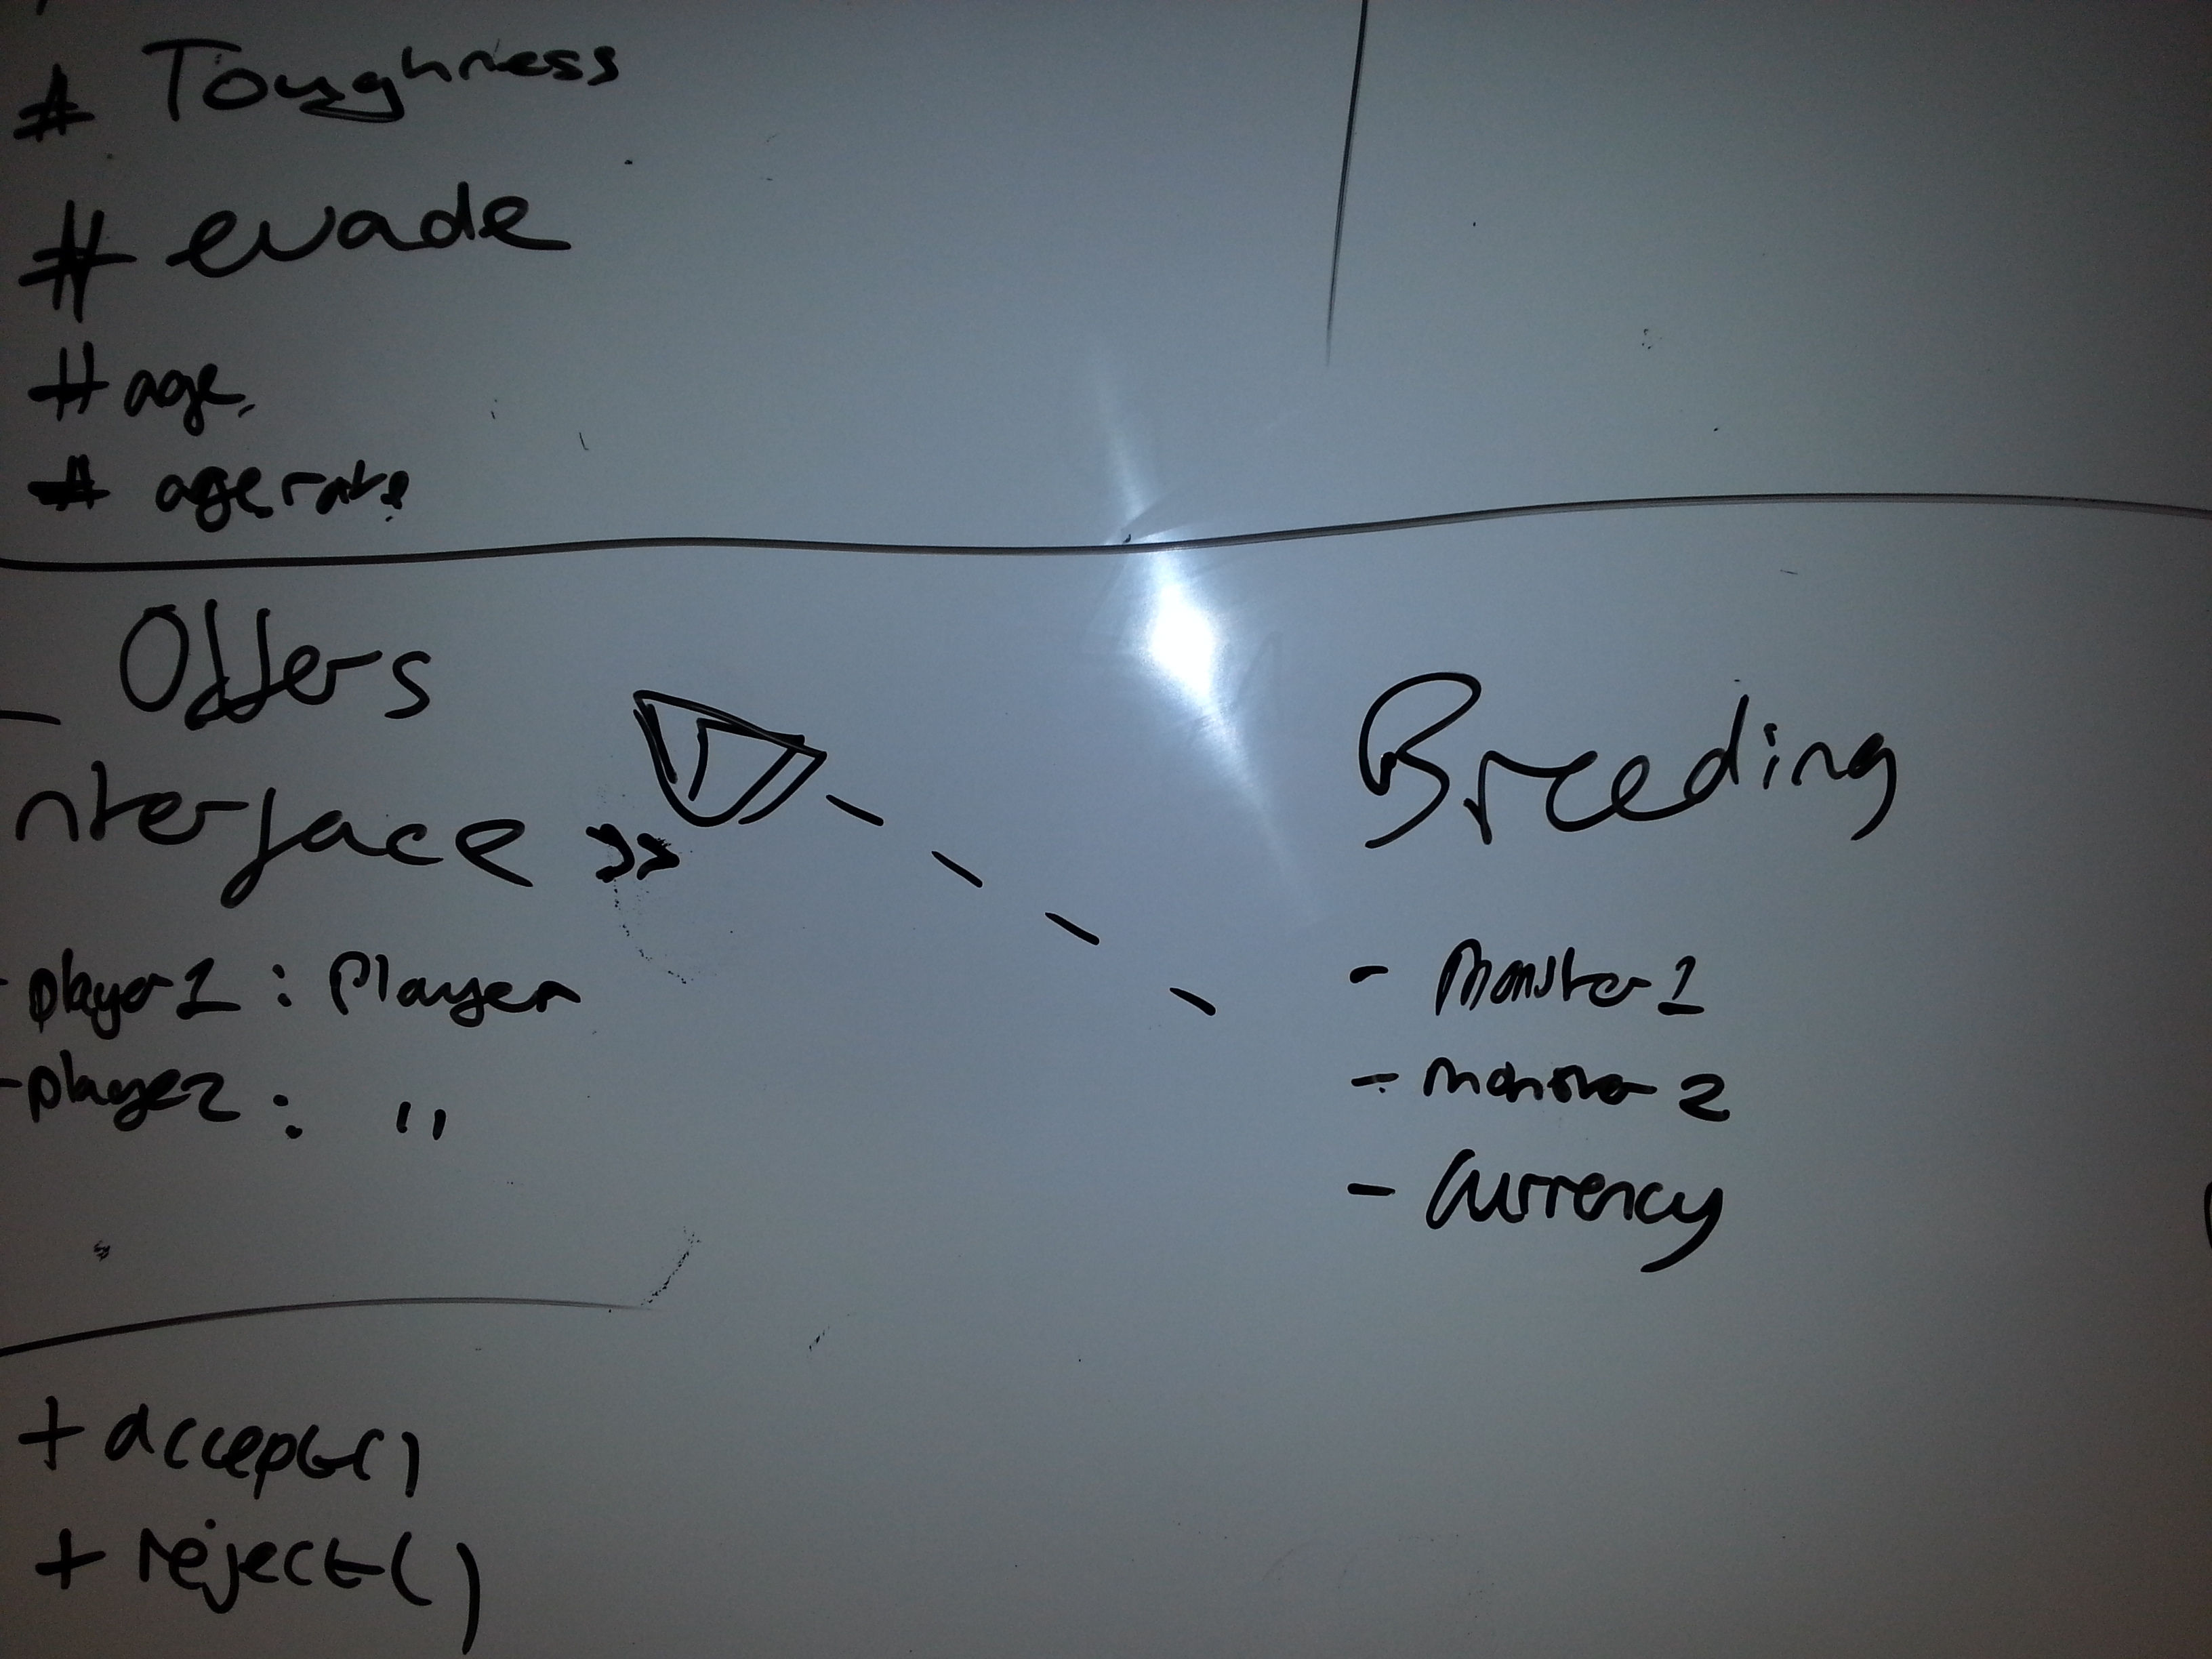 # Toughness
# evade
# age
# agerate
Offers
nterface >>
- player1 : Player
- player2 : "
+ accept()
+ reject()
Breeding
- Monster1
- monster 2
- Currency